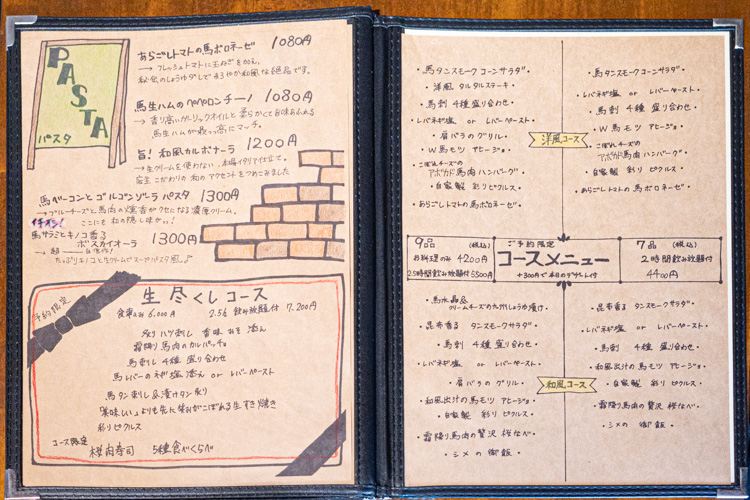 PASTA
パスタ
あらごしトマトの馬ボロネーゼ 1080円
→フレッシュトマトに玉ねぎを加え、
秘伝のしょうゆダレで
和風な絶品です。
馬生ハムのペペロンチーノ 1080円
→香り高いガーリックオイルと柔らかく旨味あふれる
馬生ハムが最っ高にマッチ。
旨! 和風カルボナーラ 1200円
→生クリームを使わない、本場イタリア仕立て。
店主こだわりの和のアクセントをつめこみました
馬ベーコンとゴルゴンゾーラパスタ 1300円
→ブルーチーズと馬肉の燻香がクセになる濃厚クリーム。
ここにも和の隠し味が。。!
イチオシ!
馬サラミとキノコ香る
ボスカイオーラ 1300円
たっぷりキノコと生クリームでスープパスタ風♪
予約限定
生尽くしコース
食事のみ 6.000円 2.5h 飲み放題付 7.200円
炙りハツ刺し 香味みそ添え
霜降り馬肉のカルパッチョ
馬刺し 4種 盛り合わせ
馬レバーのネギ塩添え or レバーペースト
馬タン刺し&漬けタン炙り
「美味しい」よりも先に笑みがこぼれる生すき焼き
彩りピクルス
コース限定
桜肉寿司 5種食べくらべ
・馬タンスモークコーンサラダ・
・洋風 タルタルステーキ・
・馬刺 4種 盛り合わせ・
・レバネギ塩 or レバーペースト・
・肩バラのグリル・
・W馬モツ アヒージョ・
・こぼれチーズの
アボカド馬肉ハンバーグ・
・自家製 彩りピクルス・
・あらごしトマトの馬ボロネーゼ・
洋風コース
・馬タンスモークコーンサラダ・
・馬刺 4種 盛り合わせ・
・レバネギ塩 or レバーペースト・
・W馬モツ アヒージョ・
・こぼれチーズの
アボカド馬肉ハンバーグ・
・自家製 彩りピクルス・
・あらごしトマトの馬ボロネーゼ・
9品 (税込)
お料理のみ 4200円
2.5時間飲み放題付5500円
ご予約限定
コースメニュー
+300円で本日のデザート付
7品 (税込)
2時間飲み放題付
4400円
・馬水晶&
クリームチーズの九州しょうゆ漬け・
・昆布香る タンスモークサラダ・
・馬刺 4種 盛り合わせ・
・レバネギ塩 or レバーペースト・
・肩バラのグリル・
・和風出汁の馬モツアヒージョ・
・自家製 彩りピクルス・
・霜降り馬肉の贅沢 桜なべ・
・シメの御飯・
和風コース
・昆布香る タンスモークサラダ・
・レバネギ塩 or レバーペースト・
・馬刺 4種 盛り合わせ・
・和風出汁の馬モツ アヒージョ・
・自家製 彩りピクルス・
・霜降り馬肉の贅沢 桜なべ・
・シメの御飯・